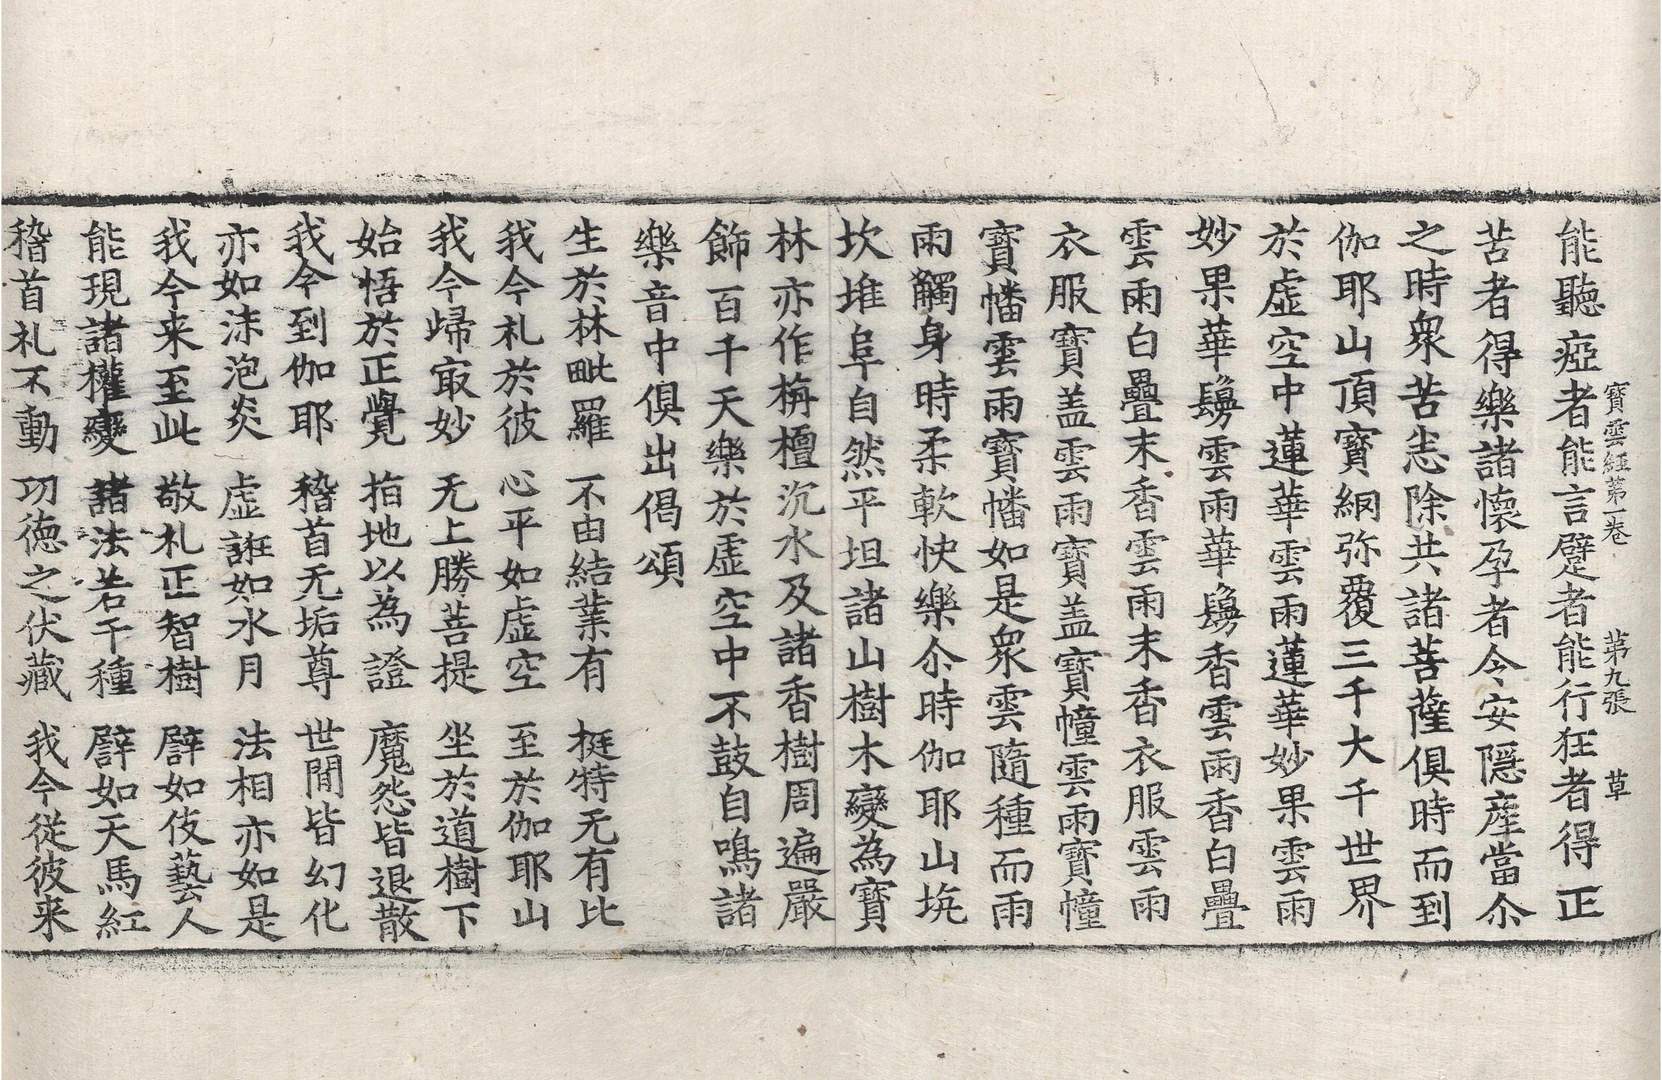 寶雲経苐一卷　苐九張　草
能聽瘂者能言躄者能行狂者得正
苦者得樂諸懷孕者令安隠產當尒
之時衆苦悉除共諸菩薩俱時而到
伽耶山頂寶網弥覆三千大千世界
於虛空中蓮華雲雨蓮華妙果雲雨
妙果華鬘雲雨華鬘香雲雨香白疊
雲雨白疊末香雲雨末香衣服雲雨
衣服寶盖雲雨寶盖寶幢雲雨寶幢
寶幡雲雨寶幡如是衆雲隨種而雨
雨觸身時柔軟快樂尒時伽耶山坑
坎堆阜自然平坦諸山樹木變為寶
林亦作栴檀沉水及諸香樹周遍嚴
飾百千天樂於虛空中不鼓自鳴諸
樂音中俱出偈頌
生於林毗羅　不由結業有　挺特无有比
我今礼於彼　心平如虛空　至於伽耶山
我今歸㝡妙　无上勝菩提　坐於道樹下
始悟於正覺　指地以為證　魔怨皆退散
我今到伽耶　稽首无垢尊　世間皆幻化
亦如沫泡炎　虛誑如水月　法相亦如是
我今来至此　敬礼正智樹　譬如伎藝人
能現諸權變　諸法若干種　譬如天馬紅
稽首礼不動　功徳之伏藏　我今從彼来